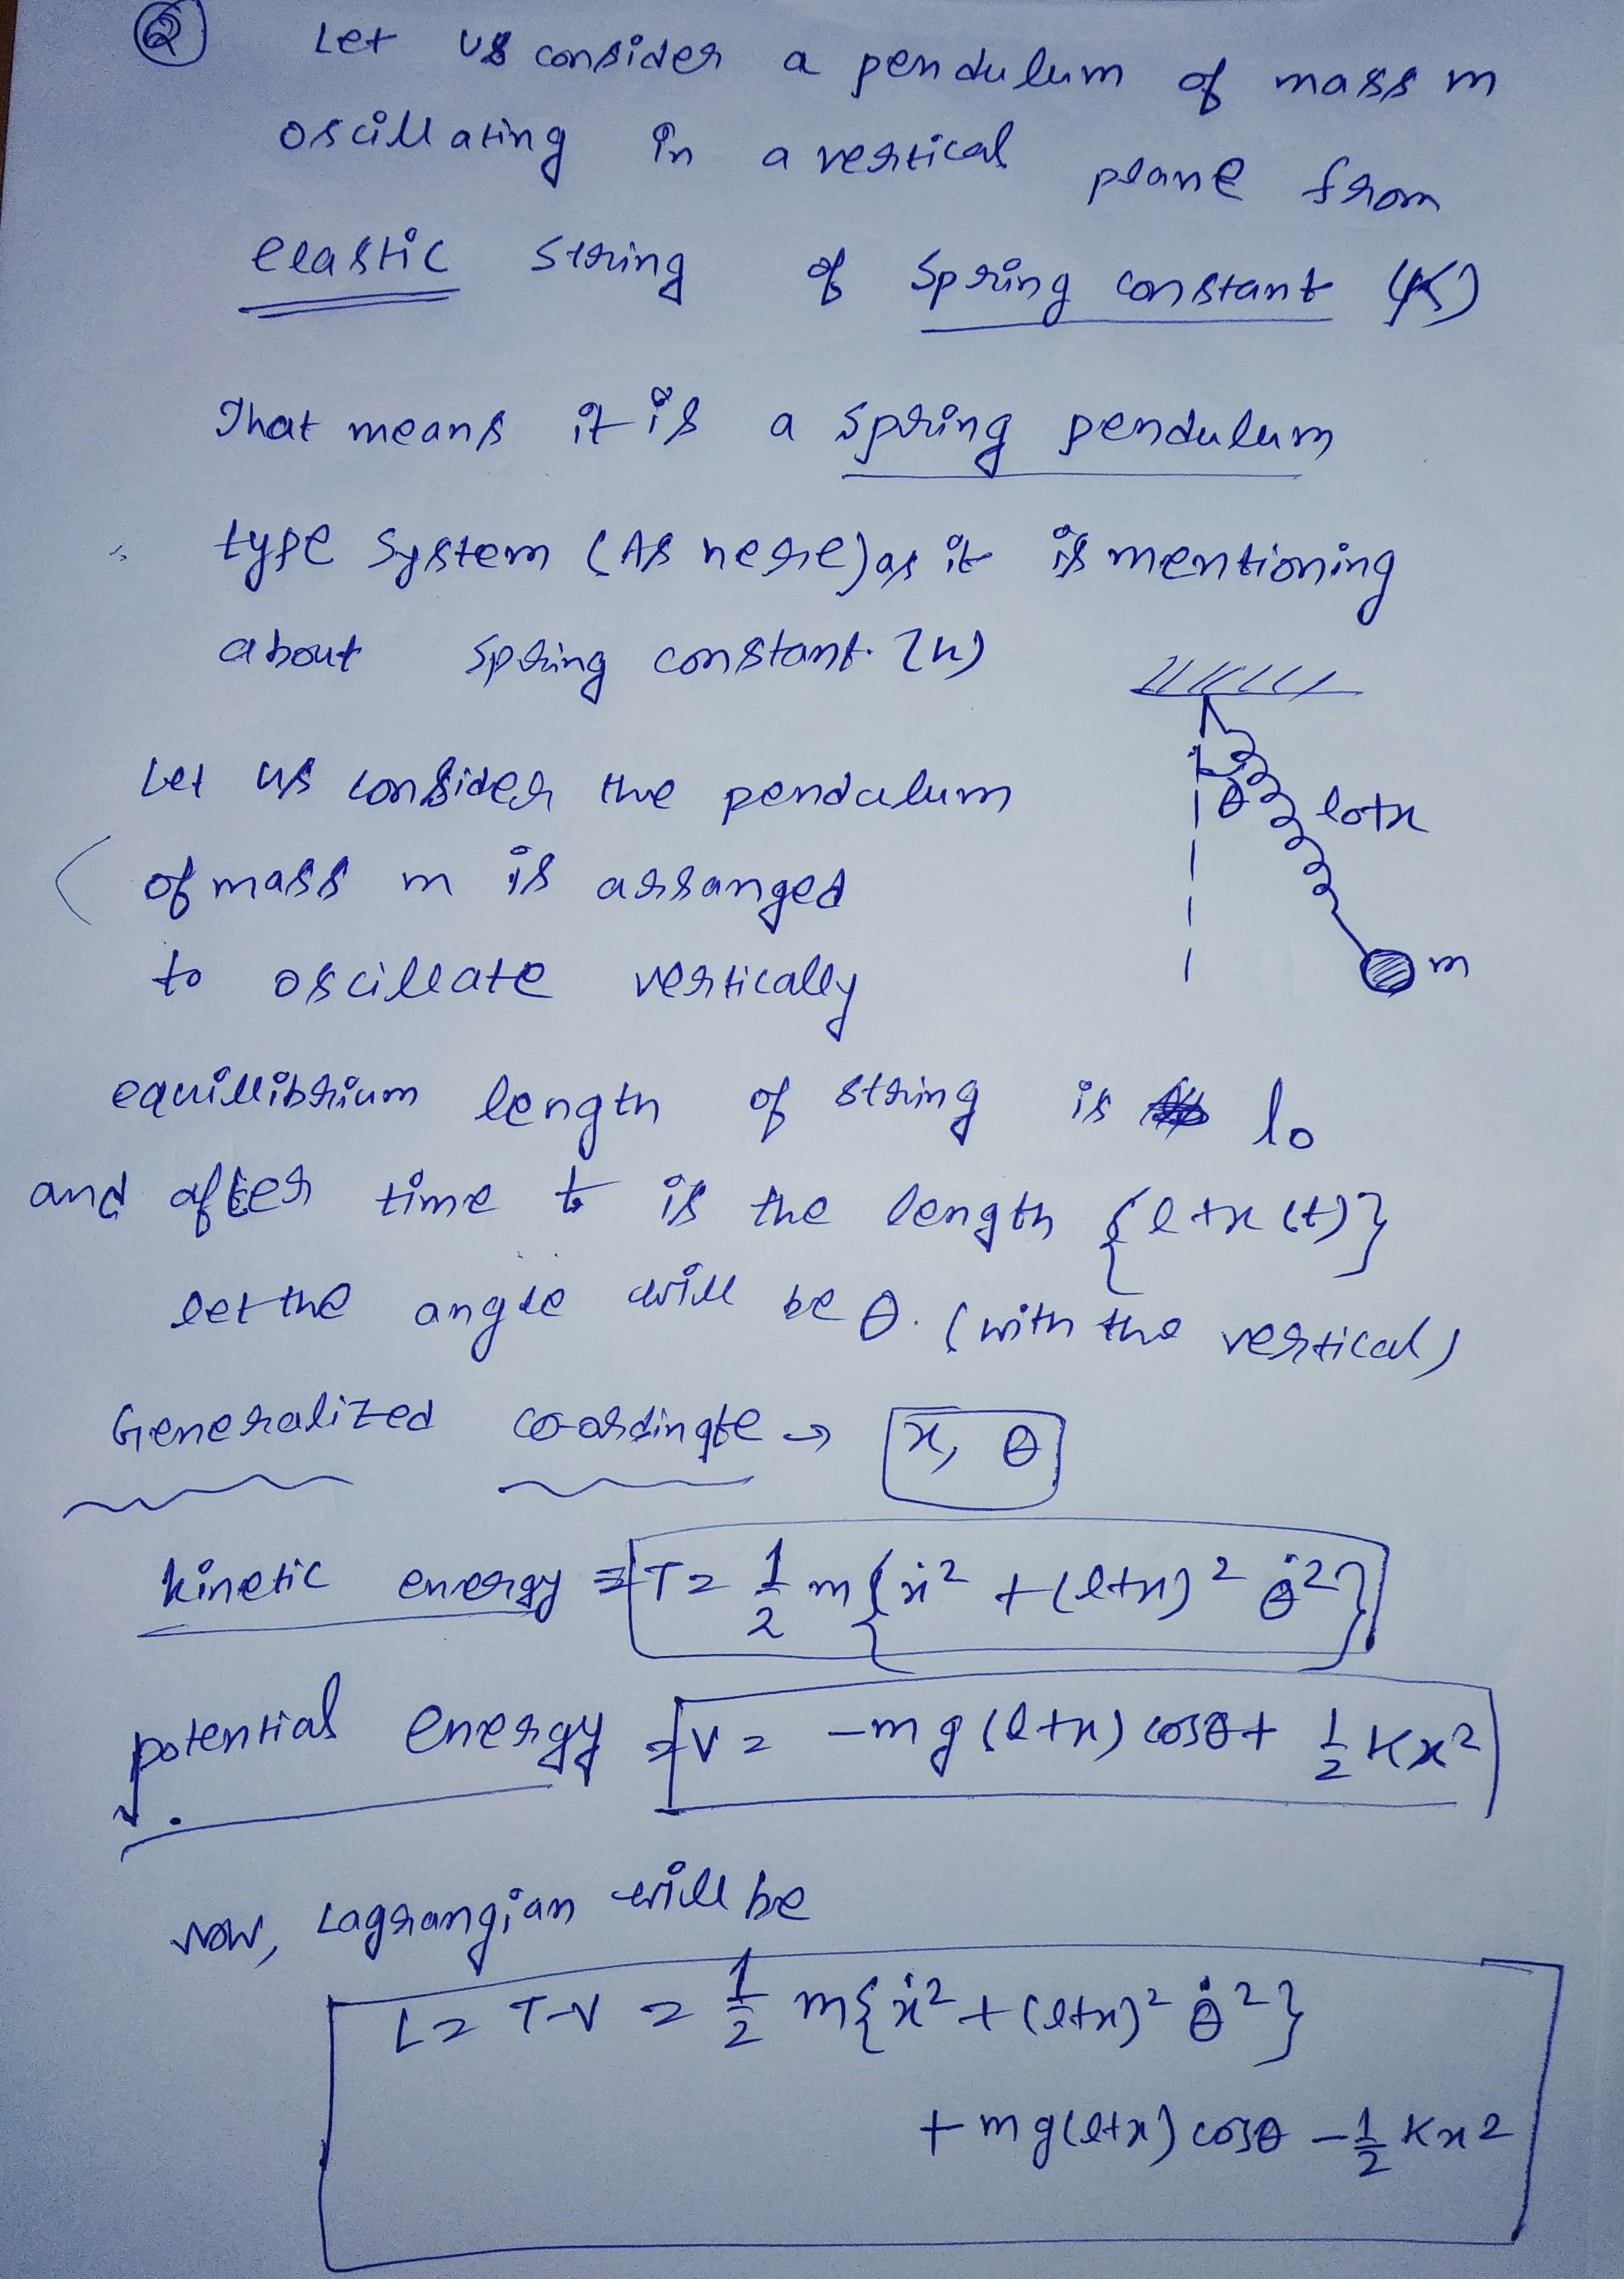 ② Let us consider a pendulum of mass m
oscillating in a vertical plane from
elastic string of spring constant (K)
That means it is a spring pendulum
type system (As here) as it is mentioning
about spring constant. (k)
Let us consider the pendulum
of mass m is arranged
to oscillate vertically
θ l0+x
m
equillibrium length of string is l0
and after time t is the length {l+x(t)}
let the angle will be θ. (with the vertical)
Generalized co-ordingte → x, θ
kinetic energy ⇒ T = 1/2 m{ẋ² + (l+x)² θ̇²}
potential energy ⇒ V = -mg(l+x) cosθ + 1/2 Kx²
Now, Lagrangian will be
L = T-V = 1/2 m{ẋ² + (l+x)² θ̇²}
+ mg(l+x) cosθ - 1/2 Kx²